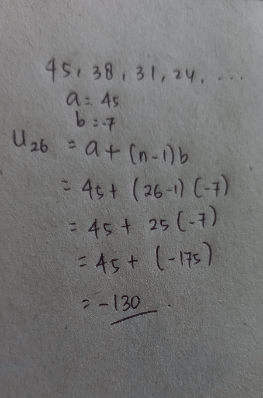 45, 38, 31, 24, ...
a = 45
b = -7
U26 = a + (n-1) b
= 45 + (26-1) (-7)
= 45 + 25 (-7)
= 45 + (-175)
= -130.